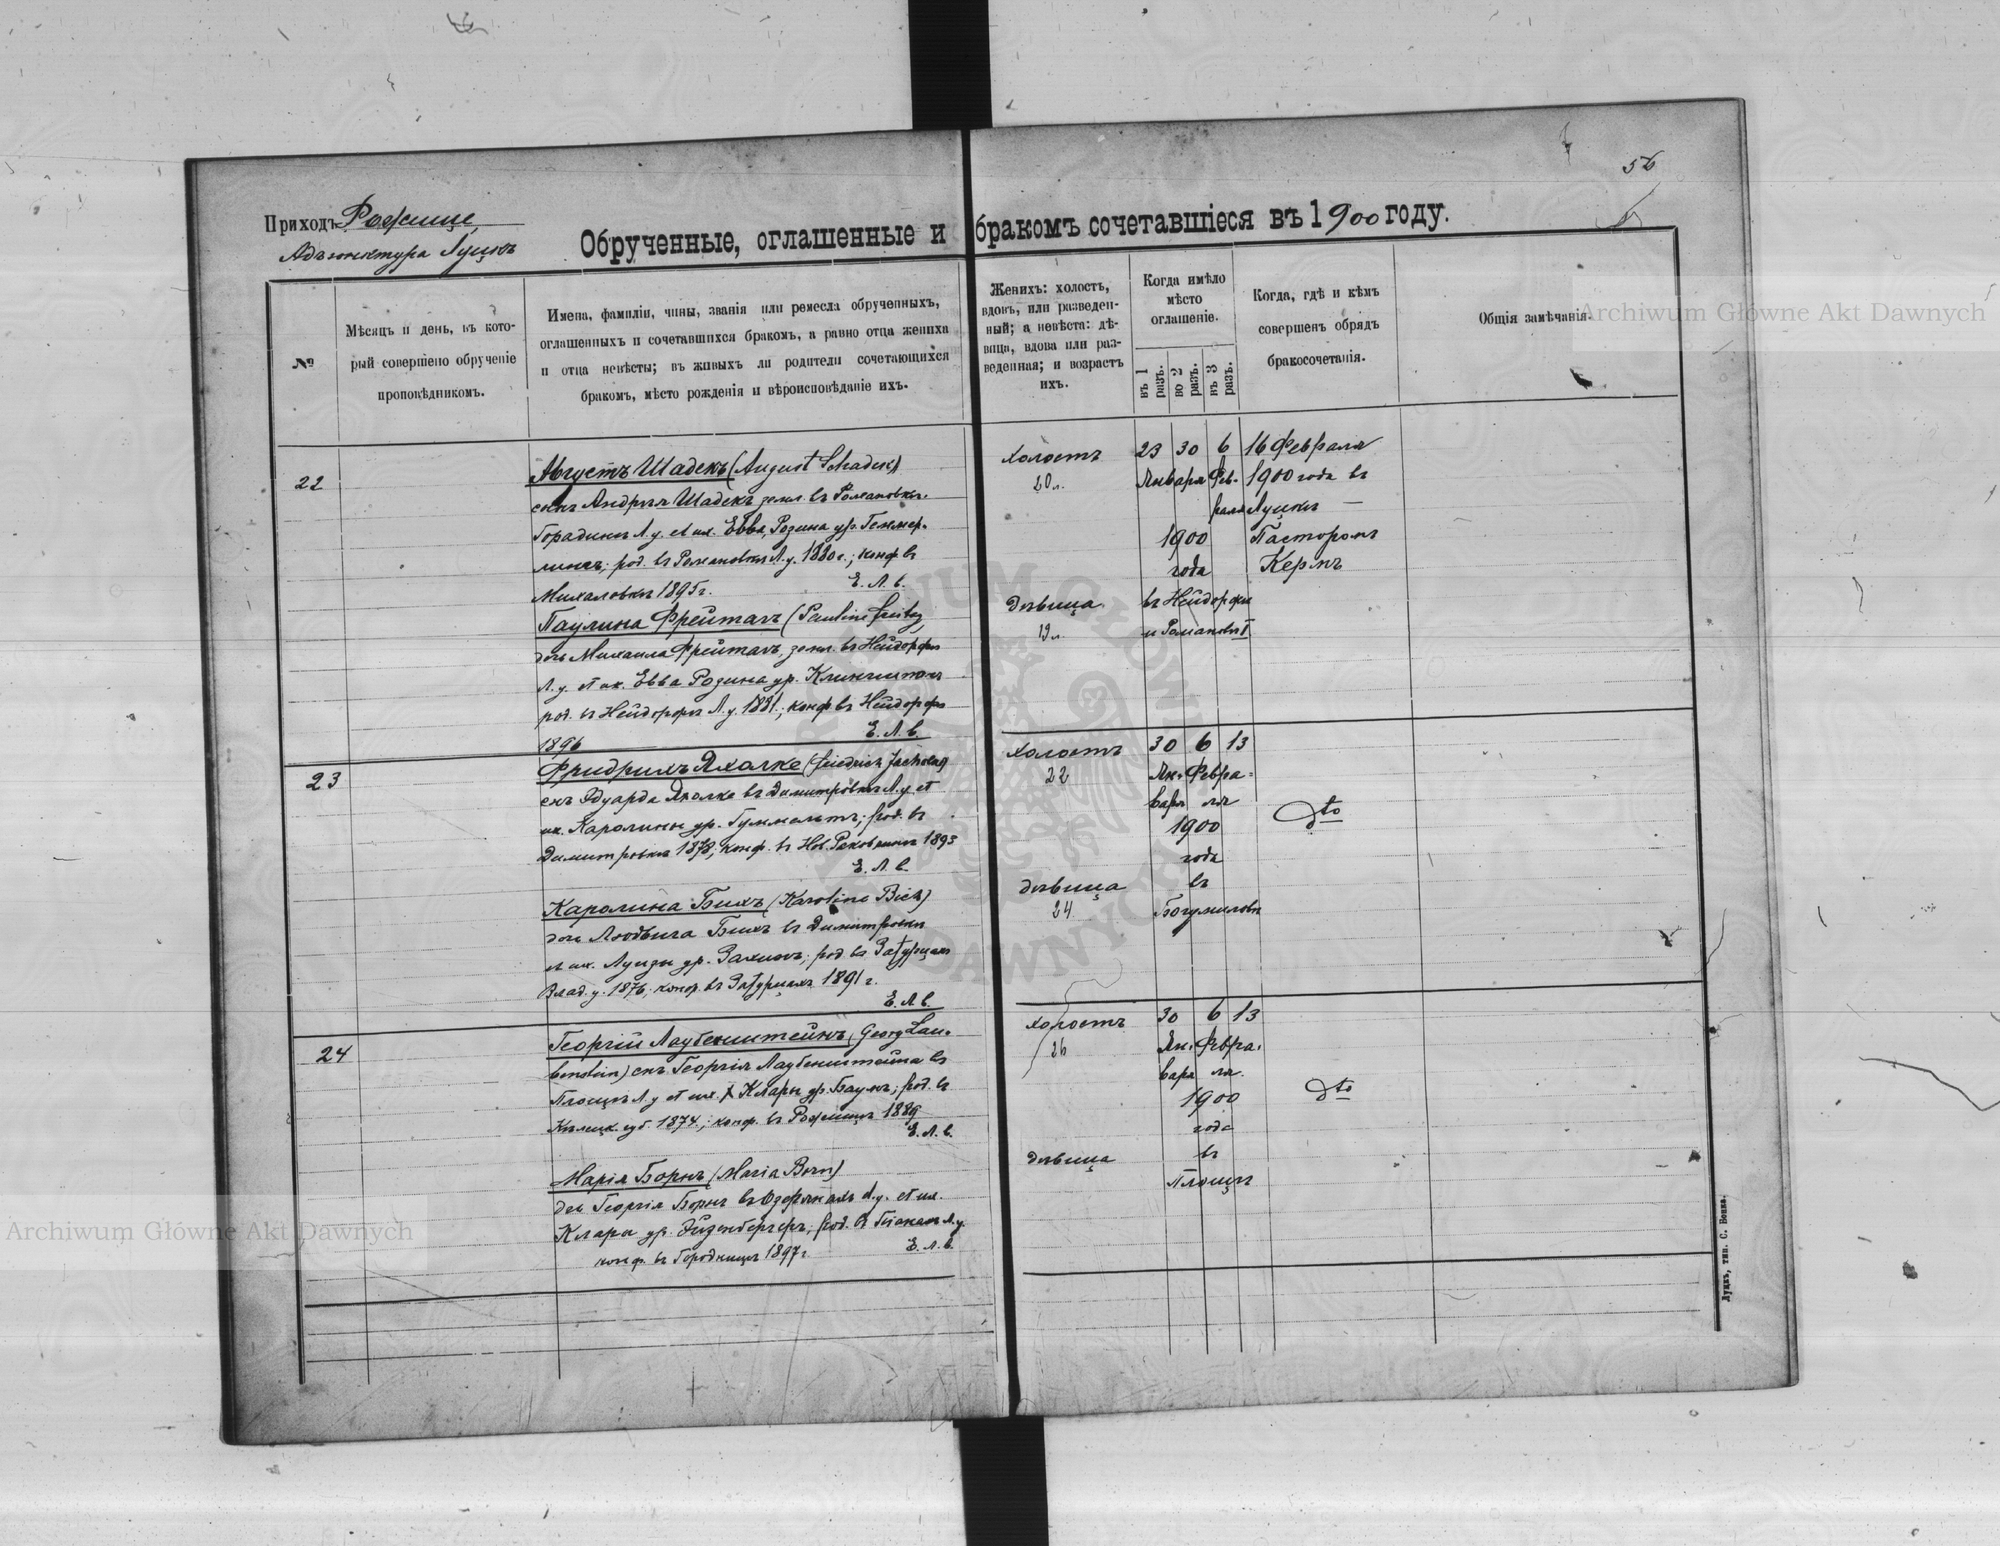 56
Приходъ Рожище,
Адъюнктура Луцкъ
Обрученные, оглашенные и бракомъ сочетавшіеся въ 1900 году.
№
Мѣсяцъ и день, въ кото-
рый совершено обрученіе
проповѣдникомъ.
Имена, фамиліи, чины, званія или ремесла обрученныхъ,
оглашенныхъ и сочетавшихся бракомъ, а равно отца жениха
и отца невѣсты; въ живыхъ ли родители сочетающихся
бракомъ, мѣсто рожденія и вѣроисповѣданіе ихъ.
Женихъ: холостъ,
вдовъ, или разведен-
ный; а невѣста: дѣ-
вица, вдова или раз-
веденная; и возрастъ
ихъ.
Когда имѣло
мѣсто
оглашеніе.
въ 1 разъ.
во 2 разъ.
въ 3 разъ.
Когда, гдѣ и кѣмъ
совершенъ обрядъ
бракосочетанія.
Общія замѣчанія.
22
Августъ Шадекъ (August Schadek)
сынъ Андрея Шадекъ земл. въ Романовкѣ
Л. у. Евва, Розина ур.
род. въ Романовкѣ Л. у. 1880 г.; конф. въ
Михаловкѣ 1895 г.
Е. Л. в.
Паулина Фрейтагъ (Pauline Freitag)
дочь Михаила Фрейтагъ, земл. въ Нейдорфѣ
Л. у. Евва Розина ур.
род. въ Нейдорфѣ Л. у. 1881; конф. въ Нейдорфѣ
1896
Е. Л. в.
холостъ
20 л.
дѣвица
19 л.
23 30 6
Января Фев-
раля
1900
года
въ Нейдорфѣ
и Романовкѣ
16 Февраля
1900 года въ
Луцкѣ —
Пасторомъ
Кермъ
23
Фридрихъ Яхолке (Friedrich Jacholke)
сын Эдуарда Яхолке въ Димитровкѣ Л. у. et
ux. Каролины ур. род. въ
Димитровкѣ 1878; конф. въ 1893
Е. Л. в.
Каролина Бихъ (Karoline Bich)
дочь Людвига Бихъ въ Димитровкѣ
et ux. Луизы ур. род. въ Затурцахъ
Влад. у. 1876; конф. въ Затурцахъ 1891 г.
Е. Л. в.
холостъ
22
дѣвица
24
30 6 13
Ян- Февра-
варя ля
1900
года
въ
Богумиловѣ
dto
24
Георгій Лаубенштейнъ (Georg Lau-
benstein) сын Георгія Лаубенштейна въ
Площѣ Л. у et ux. Клары ур. Баумъ; род. въ
Кѣлецк. губ. 1874.; конф. въ Рожищѣ 1889
Е. Л. в.
Марія Борнъ (Maria Born)
дочь Георгія Борнъ въ Озерянахъ Л. у. et ux.
Клары ур. род. въ Л. у.
конф. въ Городницѣ 1897 г.
Е. Л. в.
холостъ
26
дѣвица
30 6 13
Ян- Февра-
варя ля.
1900
года
въ
Площѣ
dto
Луцкъ, тип. С. Бонка.
Archiwum Główne Akt Dawnych
Archiwum Główne Akt Dawnych
ARCHIWUM GŁÓWNE AKT DAWNYCH